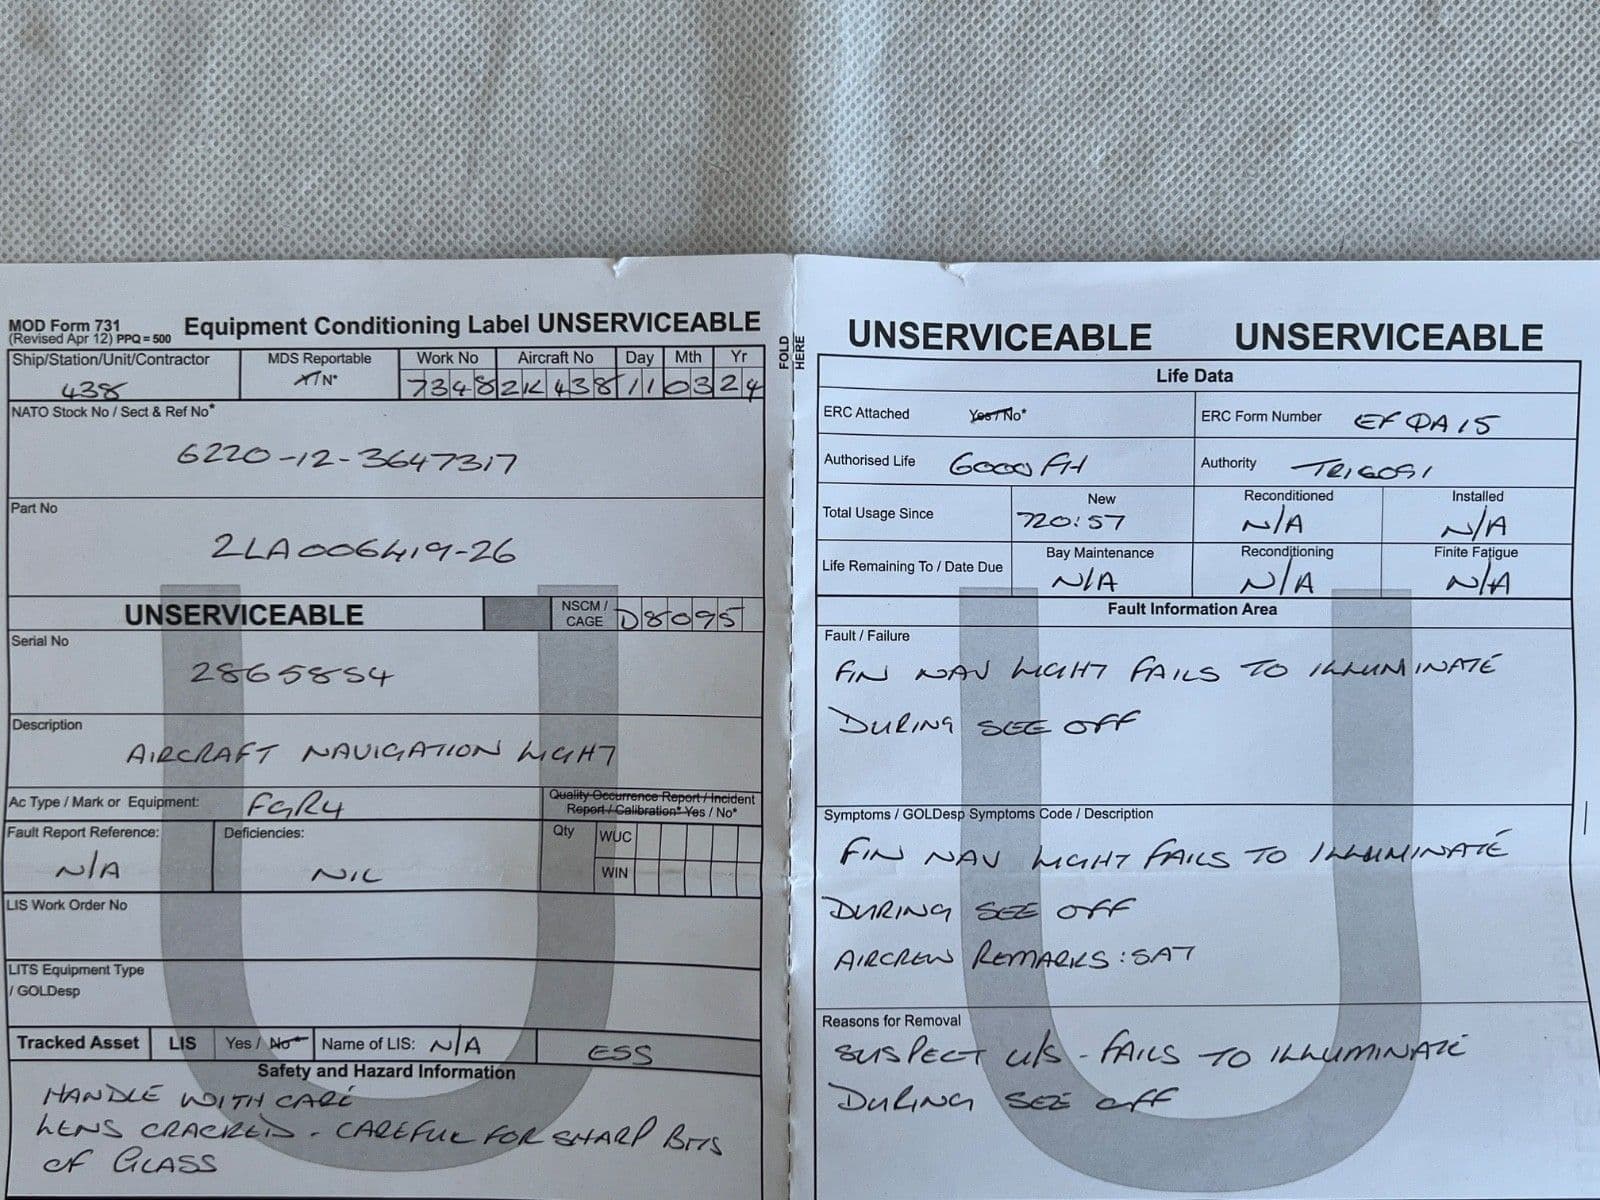 MOD Form 731
(Revised Apr 12) PPQ = 500
Equipment Conditioning Label UNSERVICEABLE
Ship/Station/Unit/Contractor
438
MDS Reportable
Y/N*
Work No
7348
Aircraft No
2K438
Day
11
Mth
03
Yr
24
NATO Stock No / Sect & Ref No*
6220-12-3647317
Part No
2LA006419-26
UNSERVICEABLE
NSCM /
CAGE
D8095
Serial No
2865854
Description
AIRCRAFT NAVIGATION LIGHT
Ac Type / Mark or Equipment:
FGR4
Quality Occurrence Report / Incident
Report / Calibration* Yes / No*
Fault Report Reference:
N/A
Deficiencies:
NIL
Qty
WUC
WIN
LIS Work Order No
LITS Equipment Type
/ GOLDesp
Tracked Asset
LIS
Yes / No*
Name of LIS: N/A
ESS
Safety and Hazard Information
HANDLE WITH CARE
LENS CRACKED - CAREFUL FOR SHARP BITS
OF GLASS
FOLD
HERE
UNSERVICEABLE UNSERVICEABLE
Life Data
ERC Attached
Yes / No*
ERC Form Number
EFQA15
Authorised Life
6000 FH
Authority
Total Usage Since
New
720:57
Reconditioned
N/A
Installed
N/A
Life Remaining To / Date Due
Bay Maintenance
N/A
Reconditioning
N/A
Finite Fatigue
N/A
Fault Information Area
Fault / Failure
FIN NAV LIGHT FAILS TO ILLUMINATE
DURING SEE OFF
Symptoms / GOLDesp Symptoms Code / Description
FIN NAV LIGHT FAILS TO ILLUMINATE
DURING SEE OFF
AIRCREW REMARKS: SAT
Reasons for Removal
SUSPECT U/S - FAILS TO ILLUMINATE
DURING SEE OFF